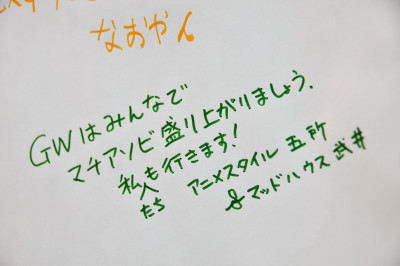 なおやん
GWはみんなで
マチアソビ盛り上がりましょう.
私人たちも行きます!
アニメスタイル 五所
&マッドハウス 武井